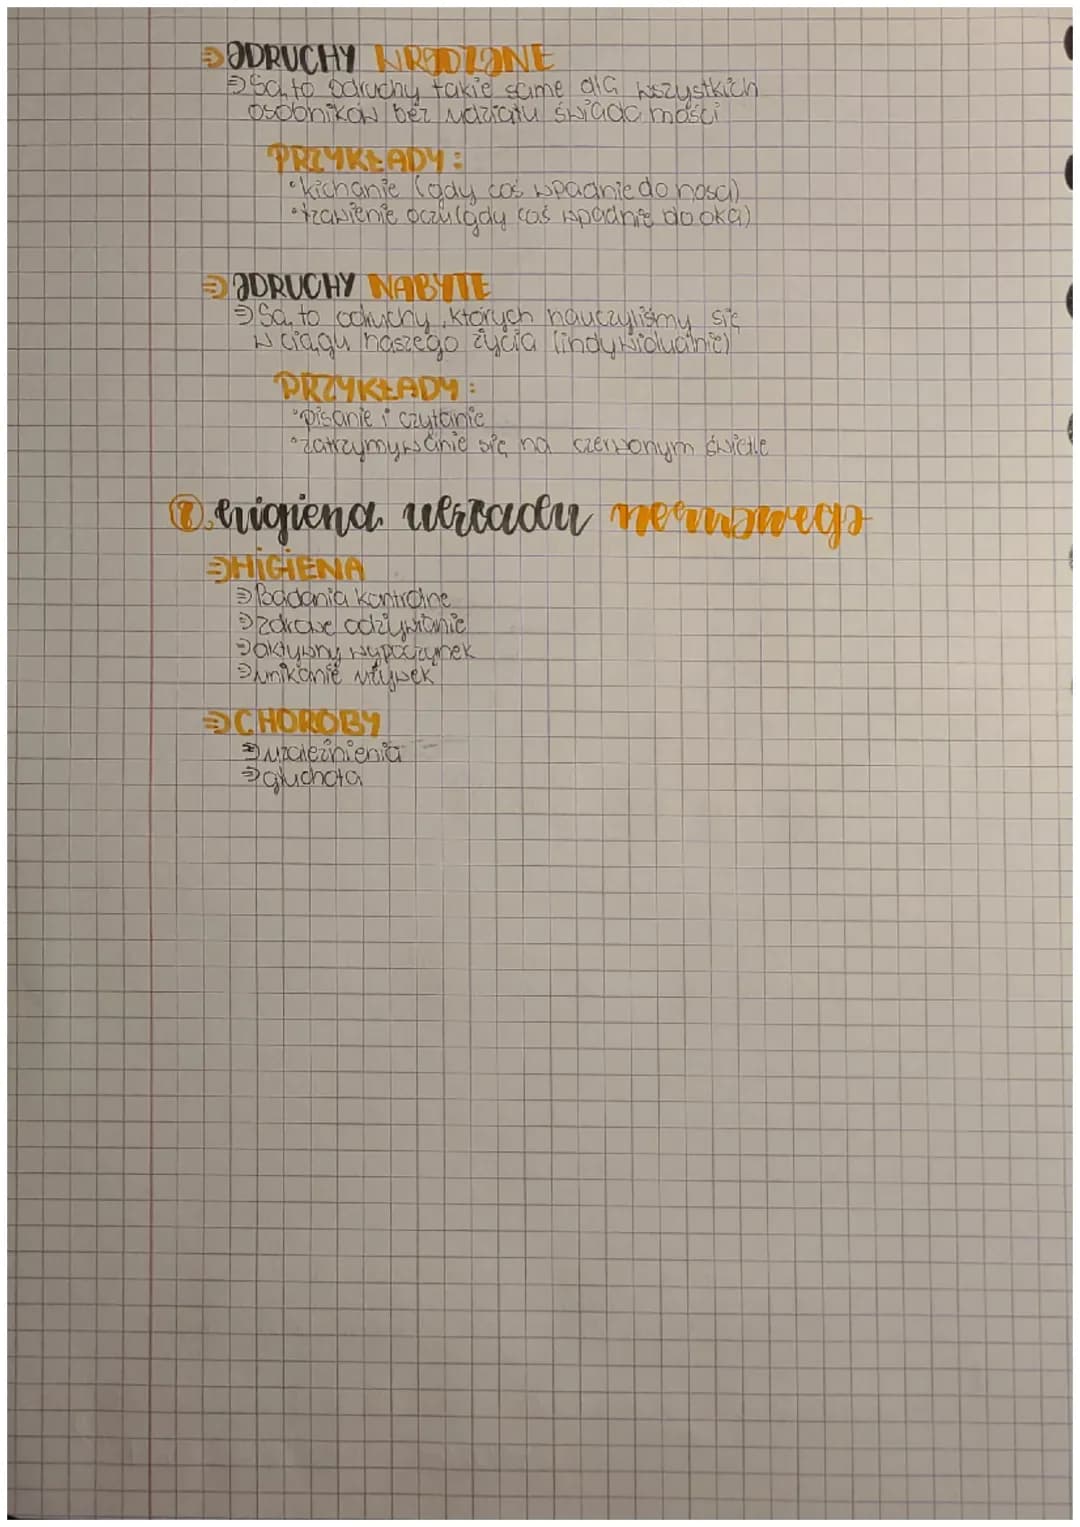 ODRUCHY WRODZONE
Są to odruchy takie same dla wszystkich
osobników bez udziału świadomości
PRZYKŁADY:
• kichanie (gdy coś wpadnie do nosa)
• łzawienie oczu (gdy coś wpadnie do oka)
ODRUCHY NABYTE
Są to odruchy, których nauczyliśmy się
w ciągu naszego życia (indywidualnie)
PRZYKŁADY:
• pisanie i czytanie
• zatrzymywanie się na czerwonym świetle
8. higiena układu nerwowego
HIGIENA
Badania kontrolne
zdrowe odżywianie
aktywny wypoczynek
unikanie używek
CHOROBY
uzależnienia
głuchota